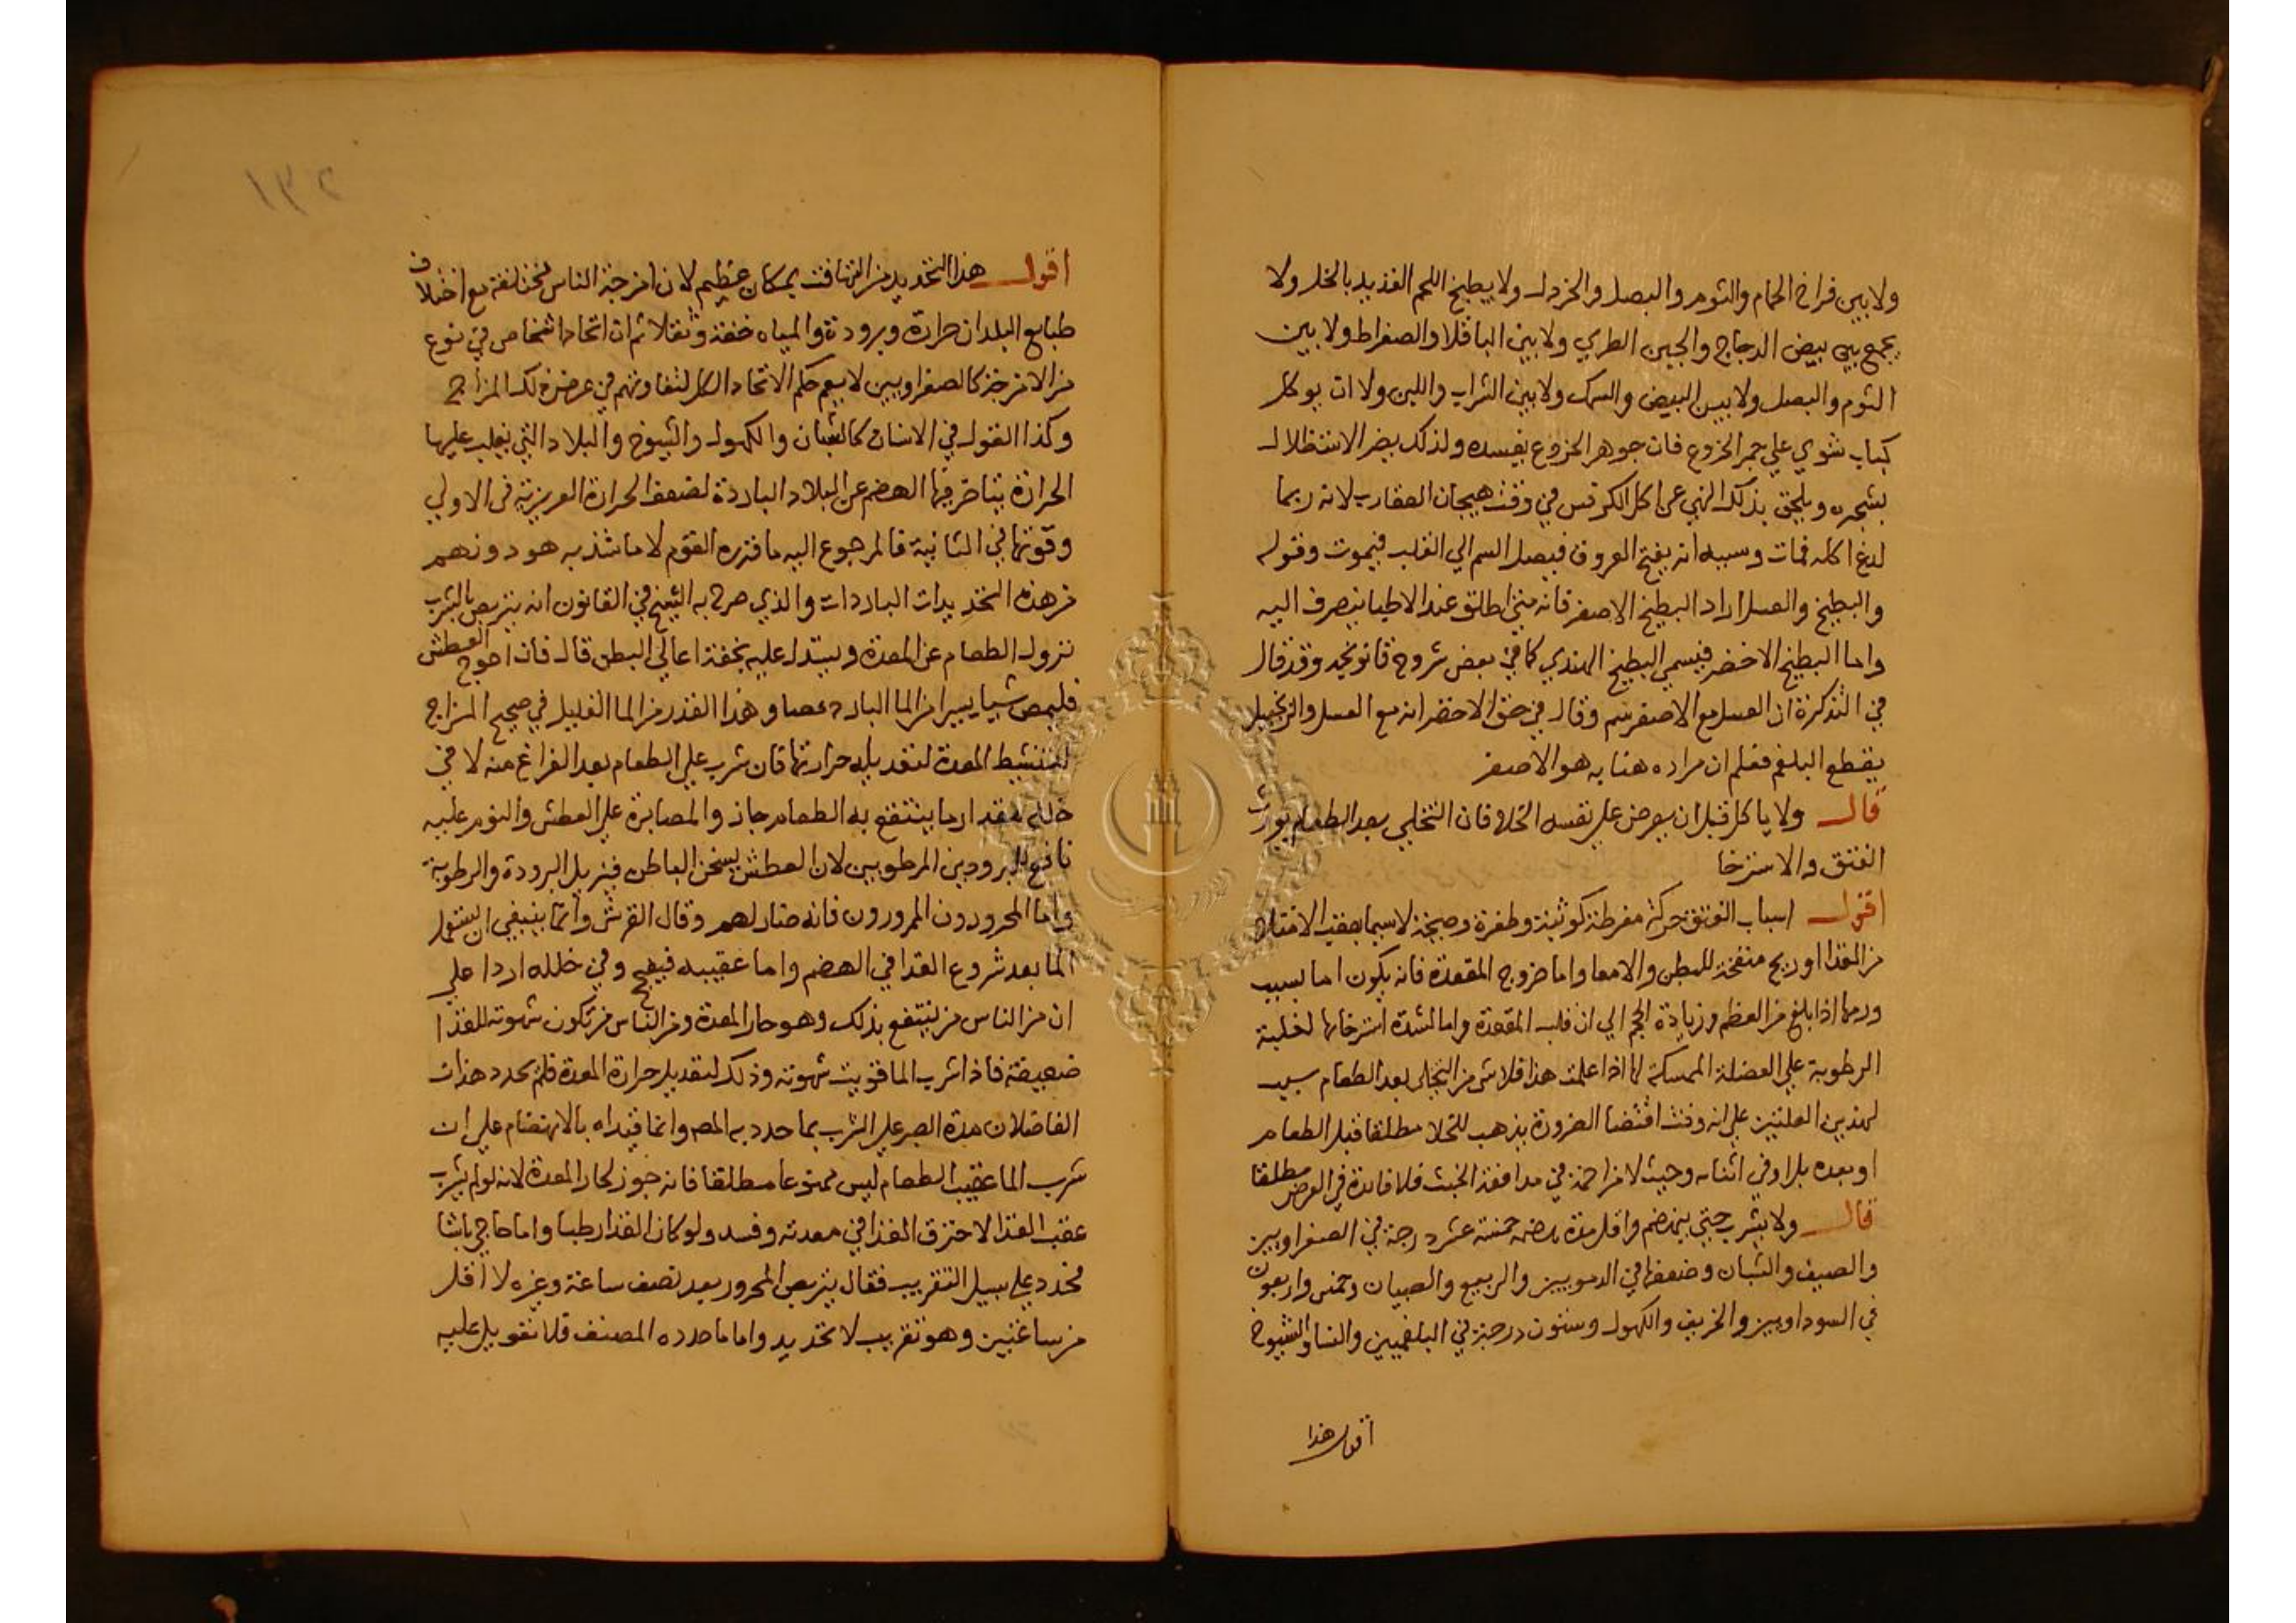 ولا بين فراخ الحمام والثوم والبصل والخردل ولا يطبخ اللحم القديد بالخل ولا
يجمع بين بيض الدجاج والجبن الطري ولا بين الباقلا والصفراط ولا بين
الثوم والبصل ولا بين البيض والسمك ولا بين الشراب واللبن ولا ان يوكل
كباب شوي علي جمر الخروع فان جوهر الخروع يفسده ولذلك يضر الاستظلال
بشجره ويلحق بذلك النهي عن اكل الكرفس في وقت هيجان العقارب لانه ربما
لدغ اكله فمات وسببه انه يفتح العروق فيصل السم الي القلب فيموت وقوله
والبطيخ والعسل اراد البطيخ الاصفر فانه متي اطلق عند الاطبا ينصرف اليه
واما البطيخ الاخضر فيسمي البطيخ الهندي كما في بعض شروح قانونجه وقد قال
في التذكرة ان العسل مع الاصفر سم وقال في حق الاخضر انه مع العسل والزنجبيل
يقطع البلغم فعلم ان مراده هنا به هو الاصفر
قال ولا ياكل قبل ان يعرض علي نفسه الخلا فان التخلي بعد الطعام يورث
الفتق والاسترخا
اقول اسباب الفتق حركة مفرطة كوثبة وطفرة وصيحة لاسيما بعقب الامتلا
من الغذا او ريح منفخة للبطن والامعا واما خروج المقعدة فانه يكون اما بسبب
ورمها اذا بلغ من العظم وزيادة الحجم الي ان قلب المقعدة واما لشدة استرخايها لغلبة
الرطوبة علي العضلة الممسكة لها اذا علمت هذا فلا شي من التخلي بعد الطعام سبب
لهذين العلتين علي انه وقت اقتضا الضرورة يذهب للخلا مطلقا قبل الطعام
او بعده بل او في اثنايه وحيث لا مزاحمة في مدافعة الخبث فلا فايدة في العرض مطلقا
قال ولا يشرب حتي ينهضم واقل مدة هضمه خمسة عشر درجة في الصفراويين
والصيف والشبان وضعفها في الدمويين والربيع والصبيان وخمس واربعون
في السوداويين والخريف والكهول وستون درجة في البلغميين والشتا والشيوخ
اقول هذا
١٣٢
اقول هذا التحديد من التهافت بمكان عظيم لان امزجة الناس مختلفة مع اختلاف
طبايع البلدان حرارة وبرودة والمياه خفة وثقلا ثم ان اتحاد اشخاص في نوع
من الامزجة كالصفراويين لا يعم حكم الاتحاد الكل لتفاوتهم في عرض ذلك المزاج
وكذا القول في الاسنان كالشبان والكهول والشيوخ والبلاد التي يغلب عليها
الحرارة يتاخر فيها الهضم عن البلاد الباردة لضعف الحرارة الغريزية في الاولي
وقوتها في الثانية فالمرجوع اليه ما قرره القوم لا ما شذ به هو دونهم
من هذه التحديدات الباردات والذي صرح به الشيخ في القانون انه يتربص بالشرب
نزول الطعام عن المعدة ويستدل عليه بخفة اعالي البطن قال فان احوج العطش
فليمص شيا يسيرا من الما البارد مصا وهذا القدر من الما القليل في صحيح المزاج
لتنشيط المعدة لتعديله حرارتها فان شرب علي الطعام بعد الفراغ منه لا في
خلله بمقدار ما ينتفع به الطعام جاز والمصابرة علي العطش والنوم عليه
نافع للمبرودين المرطوبين لان العطش يسخن الباطن فيزيل البرودة والرطوبة
واما المحرورون الممرورون فانه ضار لهم وقال القرشي وانما ينبغي ان يستعمل
الما بعد شروع الغذا في الهضم واما عقيبه فيفجج وفي خلله اردا علي
ان من الناس من ينتفع بذلك وهو حار المعدة ومن الناس من تكون شهوته للغذا
ضعيفة فاذا شرب الما قويت شهوته وذلك لتعديل حرارة المعدة فلم يحدد هذان
الفاضلان مدة الصبر علي الشرب بما حدد به المصـ وانما قيداه بالانهضام علي ان
شرب الما عقيب الطعام ليس ممنوعا مطلقا فانه جوز لحار المعدة لانه لو لم يشرب
عقب الغذا لاحترق الغذا في معدته وفسد ولو كان الغذا رطبا واما حاجي باشا
فحدد علي سبيل التقريب فقال يتربص المحرور بعد نصف ساعة وغيره لا اقل
من ساعتين وهو تقريب لا تحديد واما ما حدده المصنف فلا تعويل عليه